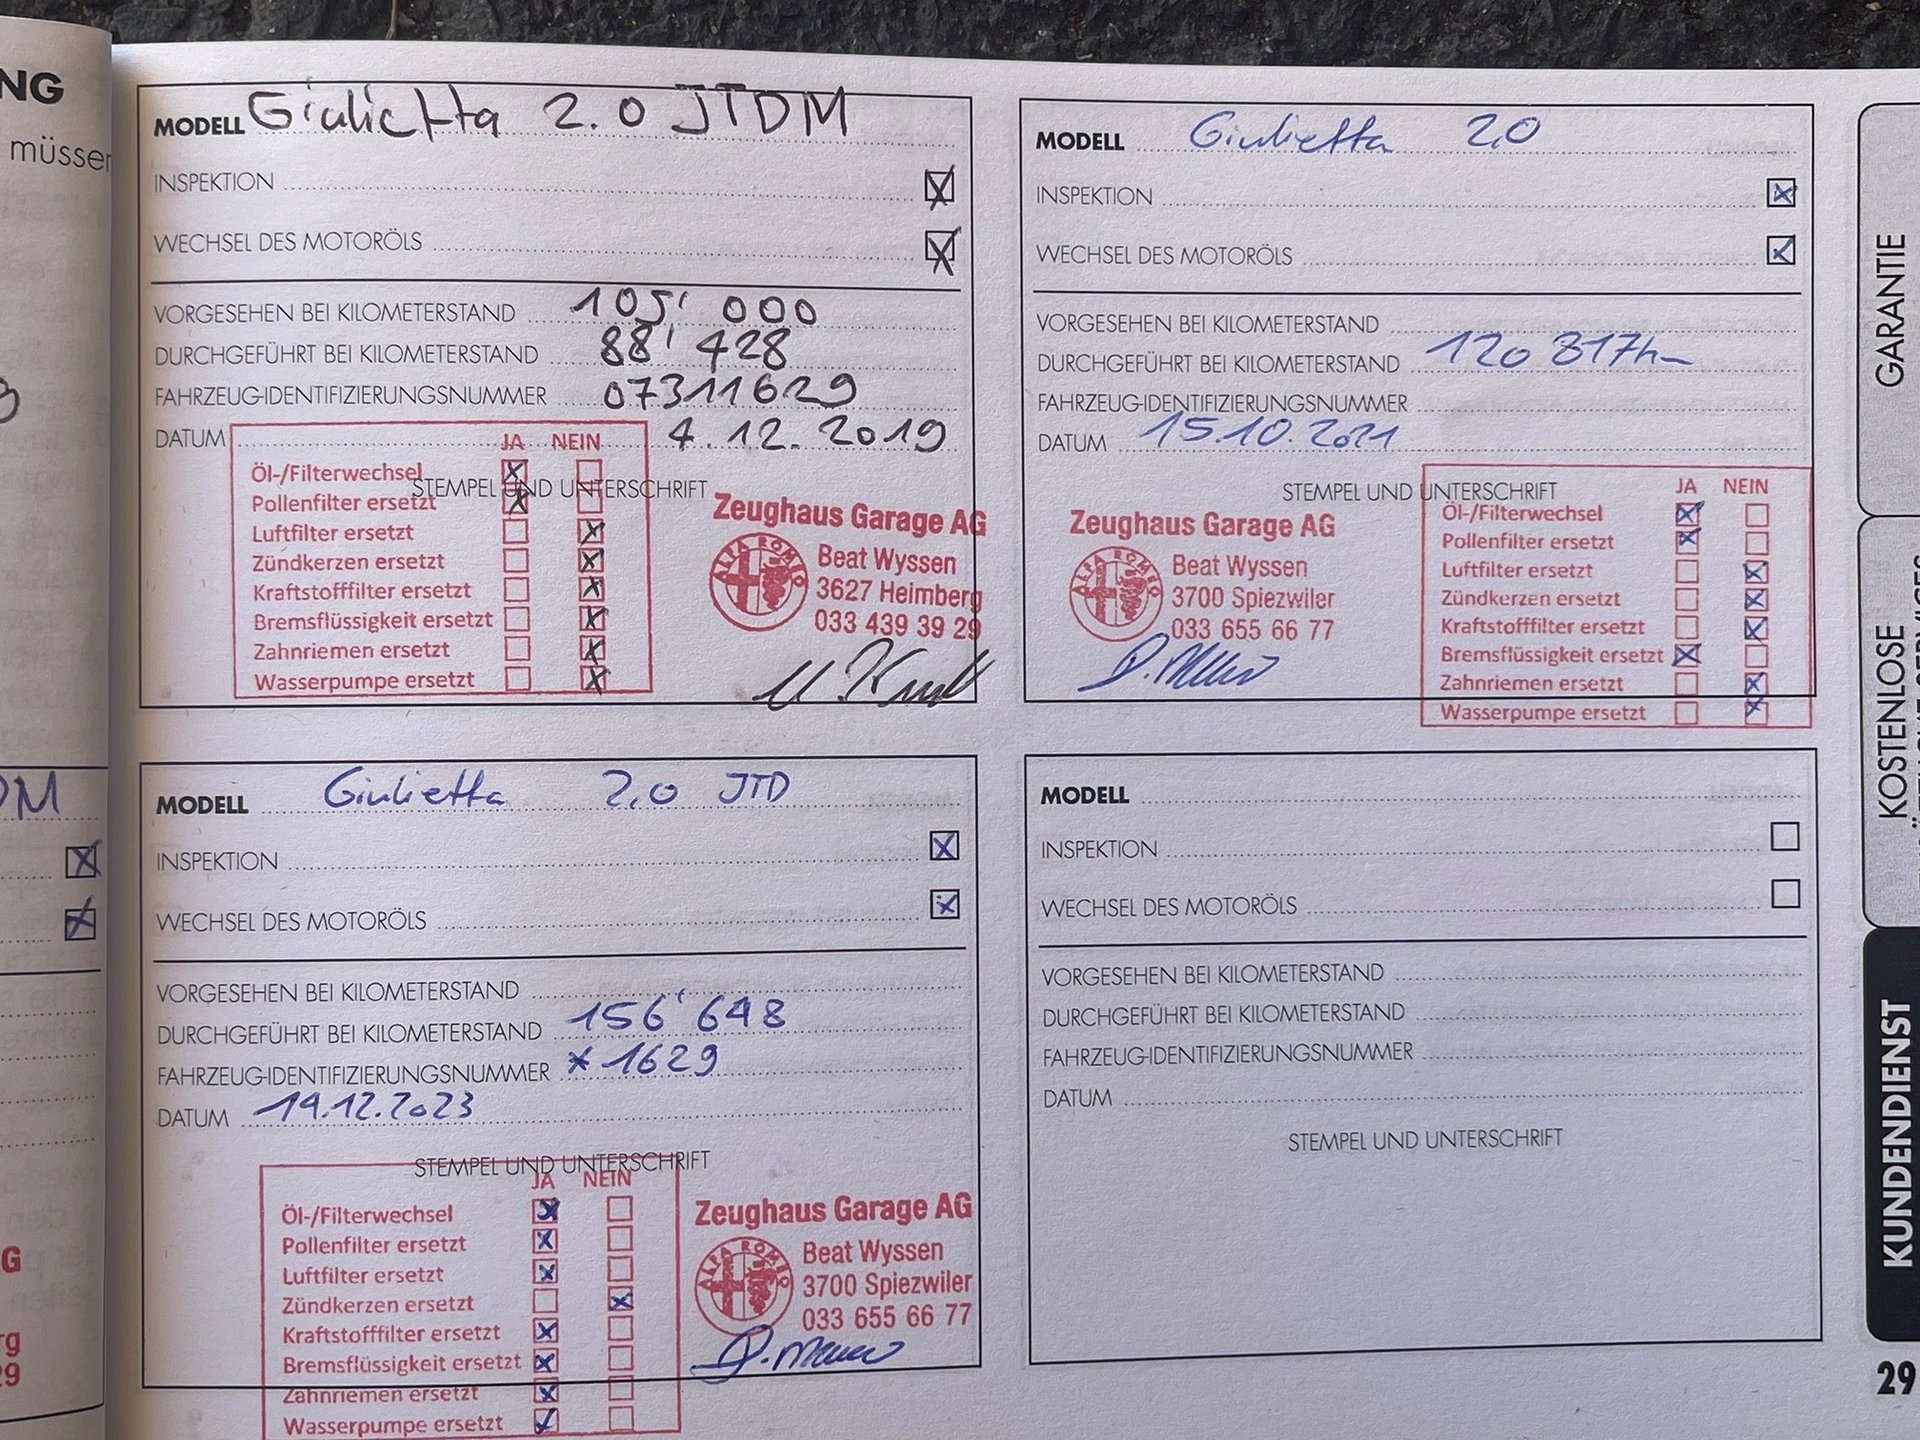 NG
müssen
DM
G
rg
29
MODELL Giulietta 2.0 JTDM
INSPEKTION
WECHSEL DES MOTORÖLS
VORGESEHEN BEI KILOMETERSTAND 105'000
DURCHGEFÜHRT BEI KILOMETERSTAND 88'428
FAHRZEUG-IDENTIFIZIERUNGSNUMMER 07311629
DATUM 4.12.2019
STEMPEL UND UNTERSCHRIFT
JA NEIN
Öl-/Filterwechsel
Pollenfilter ersetzt
Luftfilter ersetzt
Zündkerzen ersetzt
Kraftstofffilter ersetzt
Bremsflüssigkeit ersetzt
Zahnriemen ersetzt
Wasserpumpe ersetzt
Zeughaus Garage AG
ALFA ROMEO
Beat Wyssen
3627 Heimberg
033 439 39 29
MODELL Giulietta 2,0
INSPEKTION
WECHSEL DES MOTORÖLS
VORGESEHEN BEI KILOMETERSTAND
DURCHGEFÜHRT BEI KILOMETERSTAND 120 817km
FAHRZEUG-IDENTIFIZIERUNGSNUMMER
DATUM 15.10.2021
STEMPEL UND UNTERSCHRIFT
Zeughaus Garage AG
ALFA ROMEO
Beat Wyssen
3700 Spiezwiler
033 655 66 77
JA NEIN
Öl-/Filterwechsel
Pollenfilter ersetzt
Luftfilter ersetzt
Zündkerzen ersetzt
Kraftstofffilter ersetzt
Bremsflüssigkeit ersetzt
Zahnriemen ersetzt
Wasserpumpe ersetzt
MODELL Giulietta 2,0 JTD
INSPEKTION
WECHSEL DES MOTORÖLS
VORGESEHEN BEI KILOMETERSTAND
DURCHGEFÜHRT BEI KILOMETERSTAND 156'648
FAHRZEUG-IDENTIFIZIERUNGSNUMMER *1629
DATUM 14.12.2023
STEMPEL UND UNTERSCHRIFT
JA NEIN
Öl-/Filterwechsel
Pollenfilter ersetzt
Luftfilter ersetzt
Zündkerzen ersetzt
Kraftstofffilter ersetzt
Bremsflüssigkeit ersetzt
Zahnriemen ersetzt
Wasserpumpe ersetzt
Zeughaus Garage AG
ALFA ROMEO
Beat Wyssen
3700 Spiezwiler
033 655 66 77
MODELL
INSPEKTION
WECHSEL DES MOTORÖLS
VORGESEHEN BEI KILOMETERSTAND
DURCHGEFÜHRT BEI KILOMETERSTAND
FAHRZEUG-IDENTIFIZIERUNGSNUMMER
DATUM
STEMPEL UND UNTERSCHRIFT
GARANTIE
KOSTENLOSE
KUNDENDIENST
29